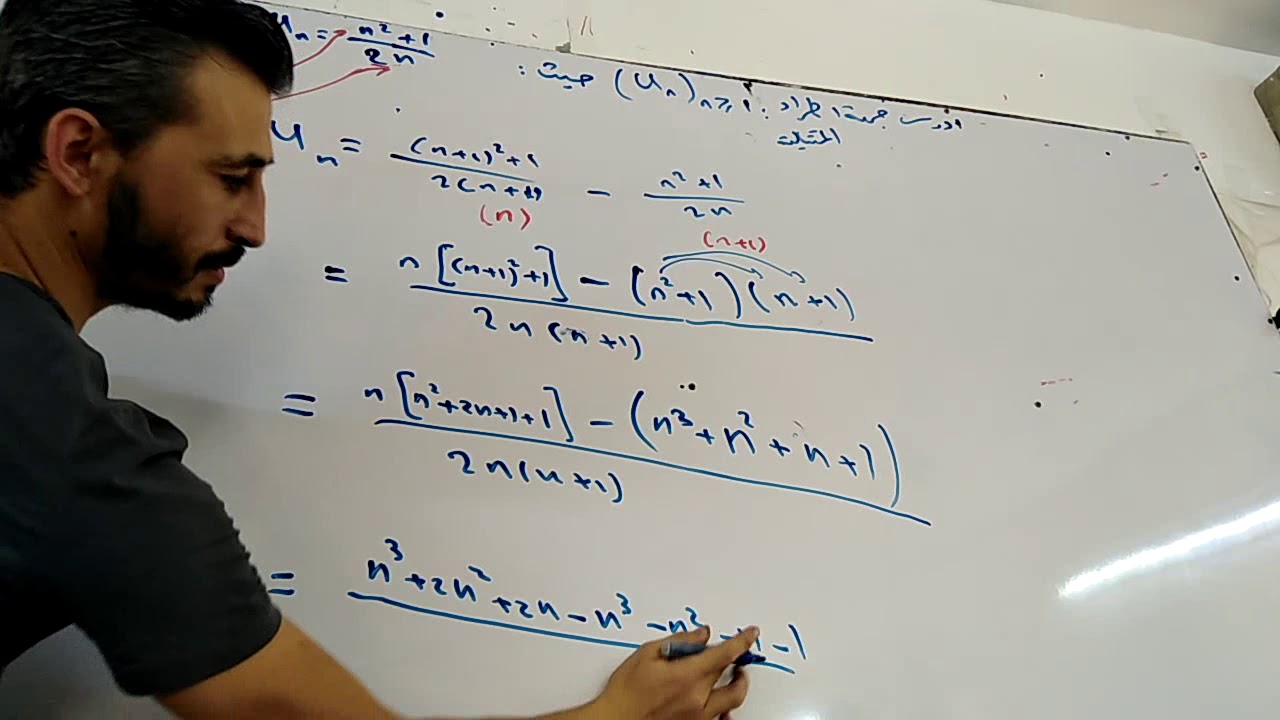 ادرس جهة اطراد : (Uₙ)ₙ≥₁ حيث : Uₙ = (n²+1)/(2n)
المتتالية
Uₙ = ((n+1)²+1)/(2(n+1)) − (n²+1)/(2n)
(n) (n+1)
= (n[(n+1)²+1] − (n²+1)(n+1))/(2n(n+1))
= (n[n²+2n+1+1] − (n³+n²+n+1))/(2n(n+1))
= n³+2n²+2n−n³−n²−n−1